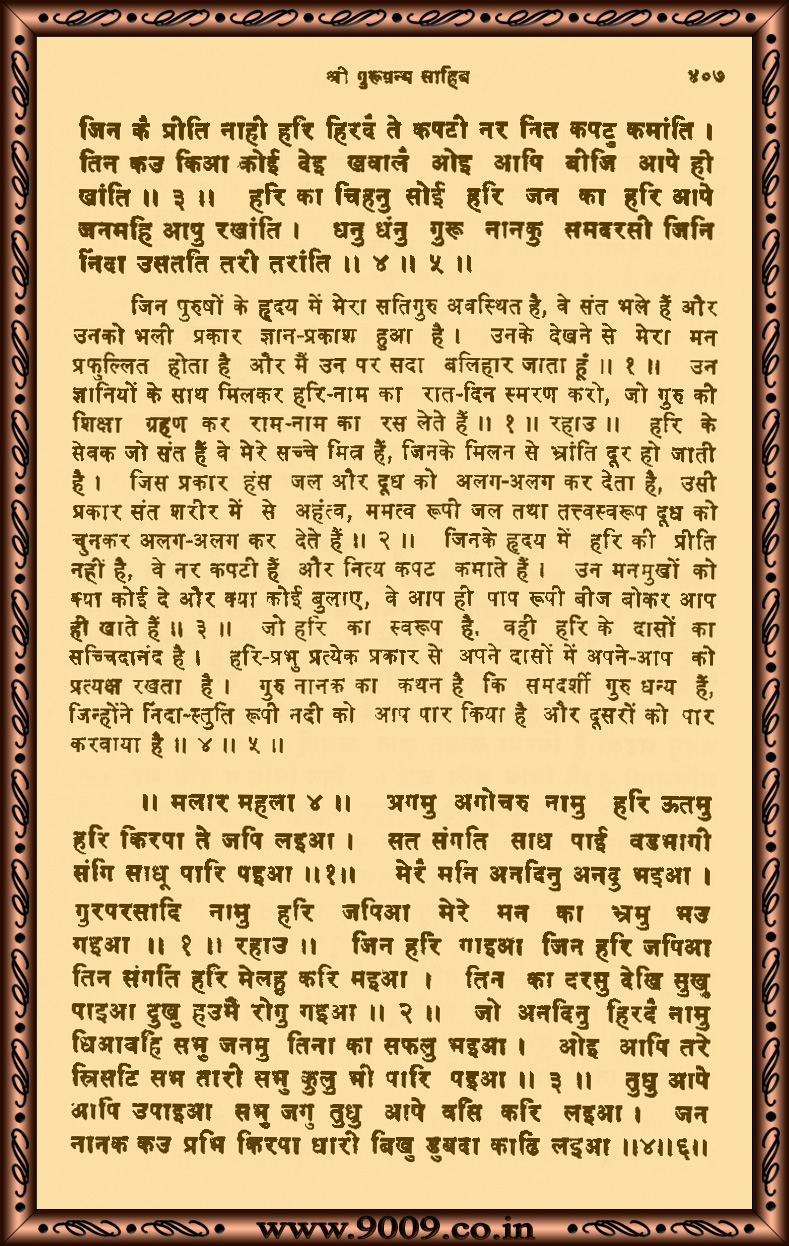 श्री गुरूग्रन्थ साहिब ४०७
जिन कै प्रीति नाही हरि हिरदै ते कपटी नर नित कपटु कमांति ।
तिन कउ किआ कोई देइ खवालै ओइ आपि बीजि आपे ही
खांति ॥ ३ ॥ हरि का चिहनु सोई हरि जन का हरि आपे
जनमहि आपु रखांति । धनु धंनु गुरू नानकु समदरसी जिनि
निंदा उसतति तरी तरांति ॥ ४ ॥ ५ ॥
जिन पुरुषों के हृदय में मेरा सतिगुरु अवस्थित है, वे संत भले हैं और
उनको भली प्रकार ज्ञान-प्रकाश हुआ है । उनके देखने से मेरा मन
प्रफुल्लित होता है और मैं उन पर सदा बलिहार जाता हूं ॥ १ ॥ उन
ज्ञानियों के साथ मिलकर हरि-नाम का रात-दिन स्मरण करो, जो गुरु की
शिक्षा ग्रहण कर राम-नाम का रस लेते हैं ॥ १ ॥ रहाउ ॥ हरि के
सेवक जो संत हैं वे मेरे सच्चे मित्र हैं, जिनके मिलन से भ्रांति दूर हो जाती
है । जिस प्रकार हंस जल और दूध को अलग-अलग कर देता है, उसी
प्रकार संत शरीर में से अहंत्व, ममत्व रूपी जल तथा तत्त्वस्वरूप दूध को
चुनकर अलग-अलग कर देते हैं ॥ २ ॥ जिनके हृदय में हरि की प्रीति
नहीं है, वे नर कपटी हैं और नित्य कपट कमाते हैं । उन मनमुखों को
क्या कोई दे और क्या कोई बुलाए, वे आप ही पाप रूपी बीज बोकर आप
ही खाते हैं ॥ ३ ॥ जो हरि का स्वरूप है, वही हरि के दासों का
सच्चिदानंद है । हरि-प्रभु प्रत्येक प्रकार से अपने दासों में अपने-आप को
प्रत्यक्ष रखता है । गुरु नानक का कथन है कि समदर्शी गुरु धन्य हैं,
जिन्होंने निंदा-स्तुति रूपी नदी को आप पार किया है और दूसरों को पार
करवाया है ॥ ४ ॥ ५ ॥
॥ मलार महला ४ ॥ अगमु अगोचरु नामु हरि ऊतमु
हरि किरपा ते जपि लइआ । सत संगति साध पाई वडभागी
संगि साधू पारि पइआ ॥१॥ मेरै मनि अनदिनु अनदु भइआ ।
गुरपरसादि नामु हरि जपिआ मेरे मन का भ्रमु भउ
गइआ ॥ १ ॥ रहाउ ॥ जिन हरि गाइआ जिन हरि जपिआ
तिन संगति हरि मेलहु करि मइआ । तिन का दरसु देखि सुखु
पाइआ दुखु हउमै रोगु गइआ ॥ २ ॥ जो अनदिनु हिरदै नामु
धिआवहि सभु जनमु तिना का सफलु भइआ । ओइ आपि तरे
स्रिसटि सभ तारी सभु कुलु भी पारि पइआ ॥ ३ ॥ तुधु आपे
आपि उपाइआ सभु जगु तुधु आपे वसि करि लइआ । जन
नानक कउ प्रभि किरपा धारी बिखु डुबदा काढि लइआ ॥४॥६॥
www.9009.co.in